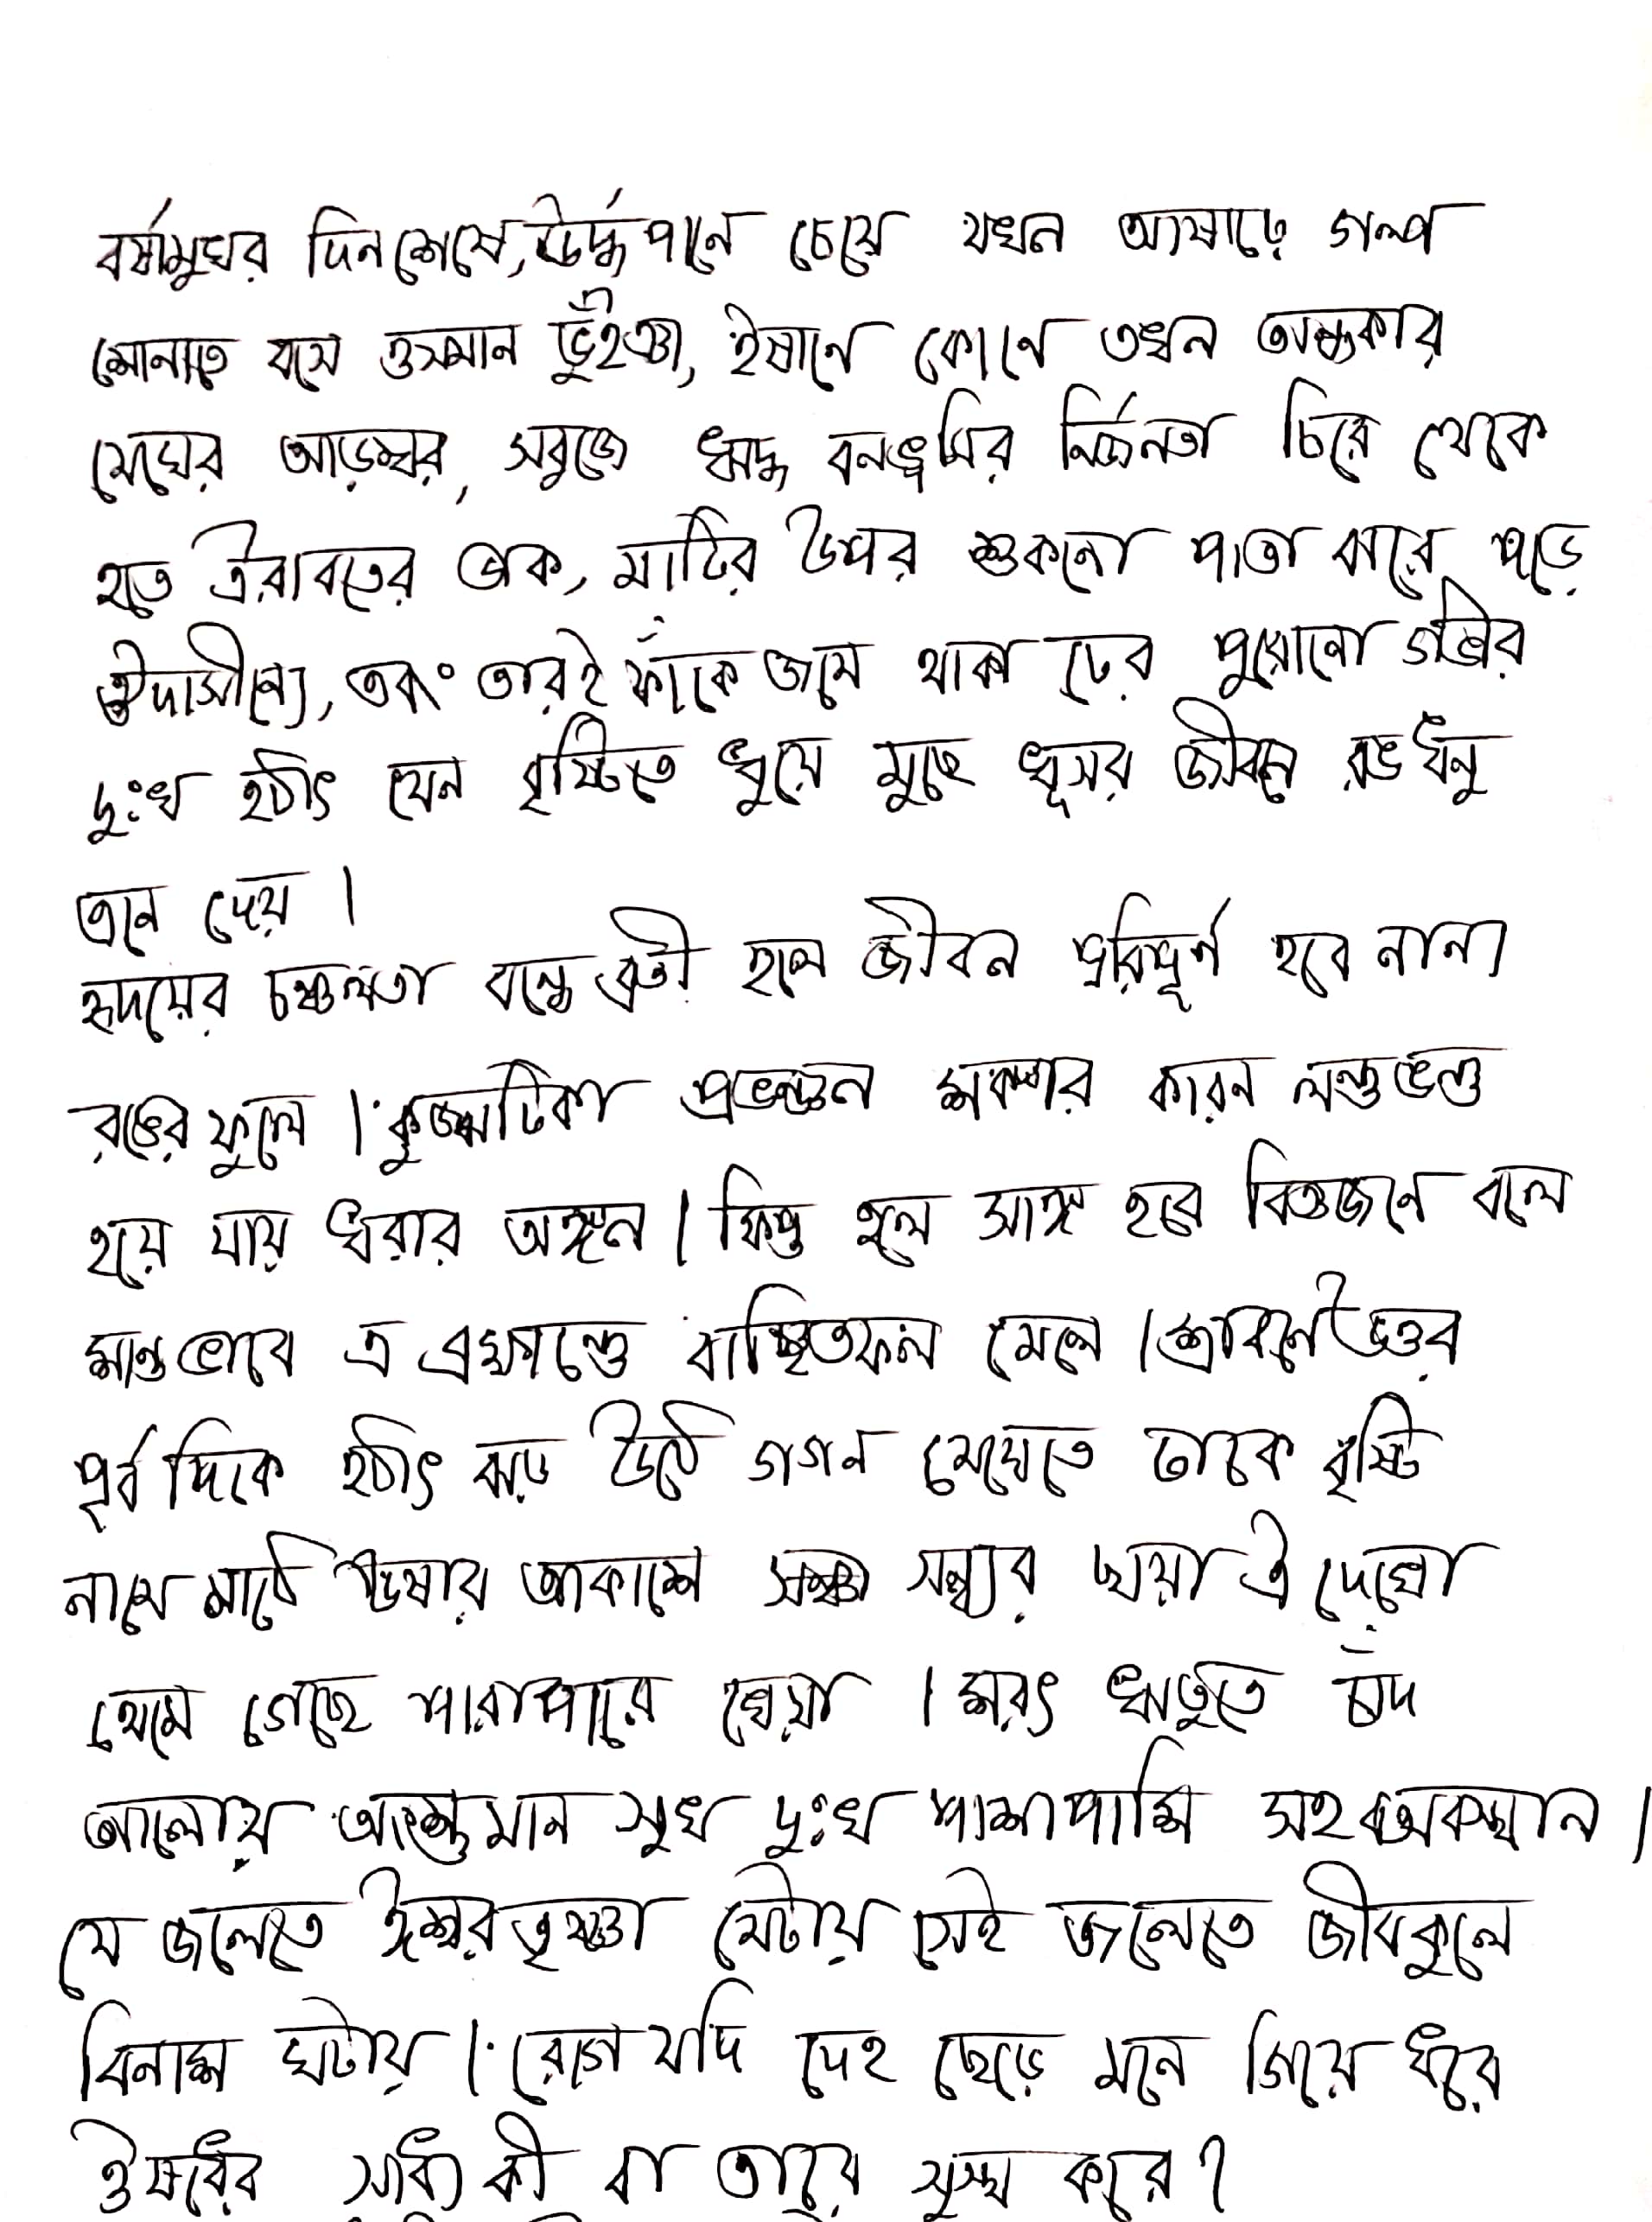 বর্ষামুখর দিনশেষে, উর্দ্ধপানে চেয়ে যখন আষাঢ়ে গল্প
শোনাতে বসে ওসমান ভুঁইঞা, ইষানে কোনে তখন অন্ধকার
মেঘের আড়ম্বর, সবুজে ঋদ্ধ বনভূমির নির্জনতা চিরে থেকে
হতে ঐরাবতের ডাক, মাটির উপর শুকনো পাতা ঝরে পড়ে
ঔদাসীন্যে, এবং তারই ফাঁকে জমে থাকা ঢের পুরোনো গভীর
দুঃখ হঠাৎ যেন বৃষ্টিতে ধুয়ে মুছে ধূসর জীবনে রঙধনু
এনে দেয় ।
হৃদয়ের চঞ্চলতা বন্ধে ব্রতী হলে জীবন পরিপূর্ন হবে নানা
রঙের ফুলে । কুজ্ঝটিকা প্রভঞ্জন শঙ্কার কারন লন্ডভন্ড
হয়ে যায় ধরার অঙ্গন । ক্ষিপ্ত হলে সাঙ্গ হবে বিজ্ঞজনে বলে
শান্তভাবে এ ব্রহ্মান্ডে বাঞ্ছিতফল মেলে । শ্রাবনে উত্তর
পূর্ব দিকে হঠাৎ ঝড় উঠে গগন মেঘেতে ঢাকে বৃষ্টি
নামে মাঠে ঊষার আকাশে সন্ধ্যার ছায়া ঐ দেখো
থেমে গেছে পারাপারে খেয়া । শরৎ ঋতুতে চাঁদ
আলোয় অংশুমান সুখ দুঃখ পাশাপাশি সহ অবস্থান ।
যে জলেতে ঈশ্বর তৃষ্ণা মেটায় সেই জলেতে জীবকুলে
বিনাশ ঘটায় । রোগ যদি দেহ ছেড়ে মনে গিয়ে ধরে
ঔষধের সাধ্য কী বা তারে সুস্থ করে ?